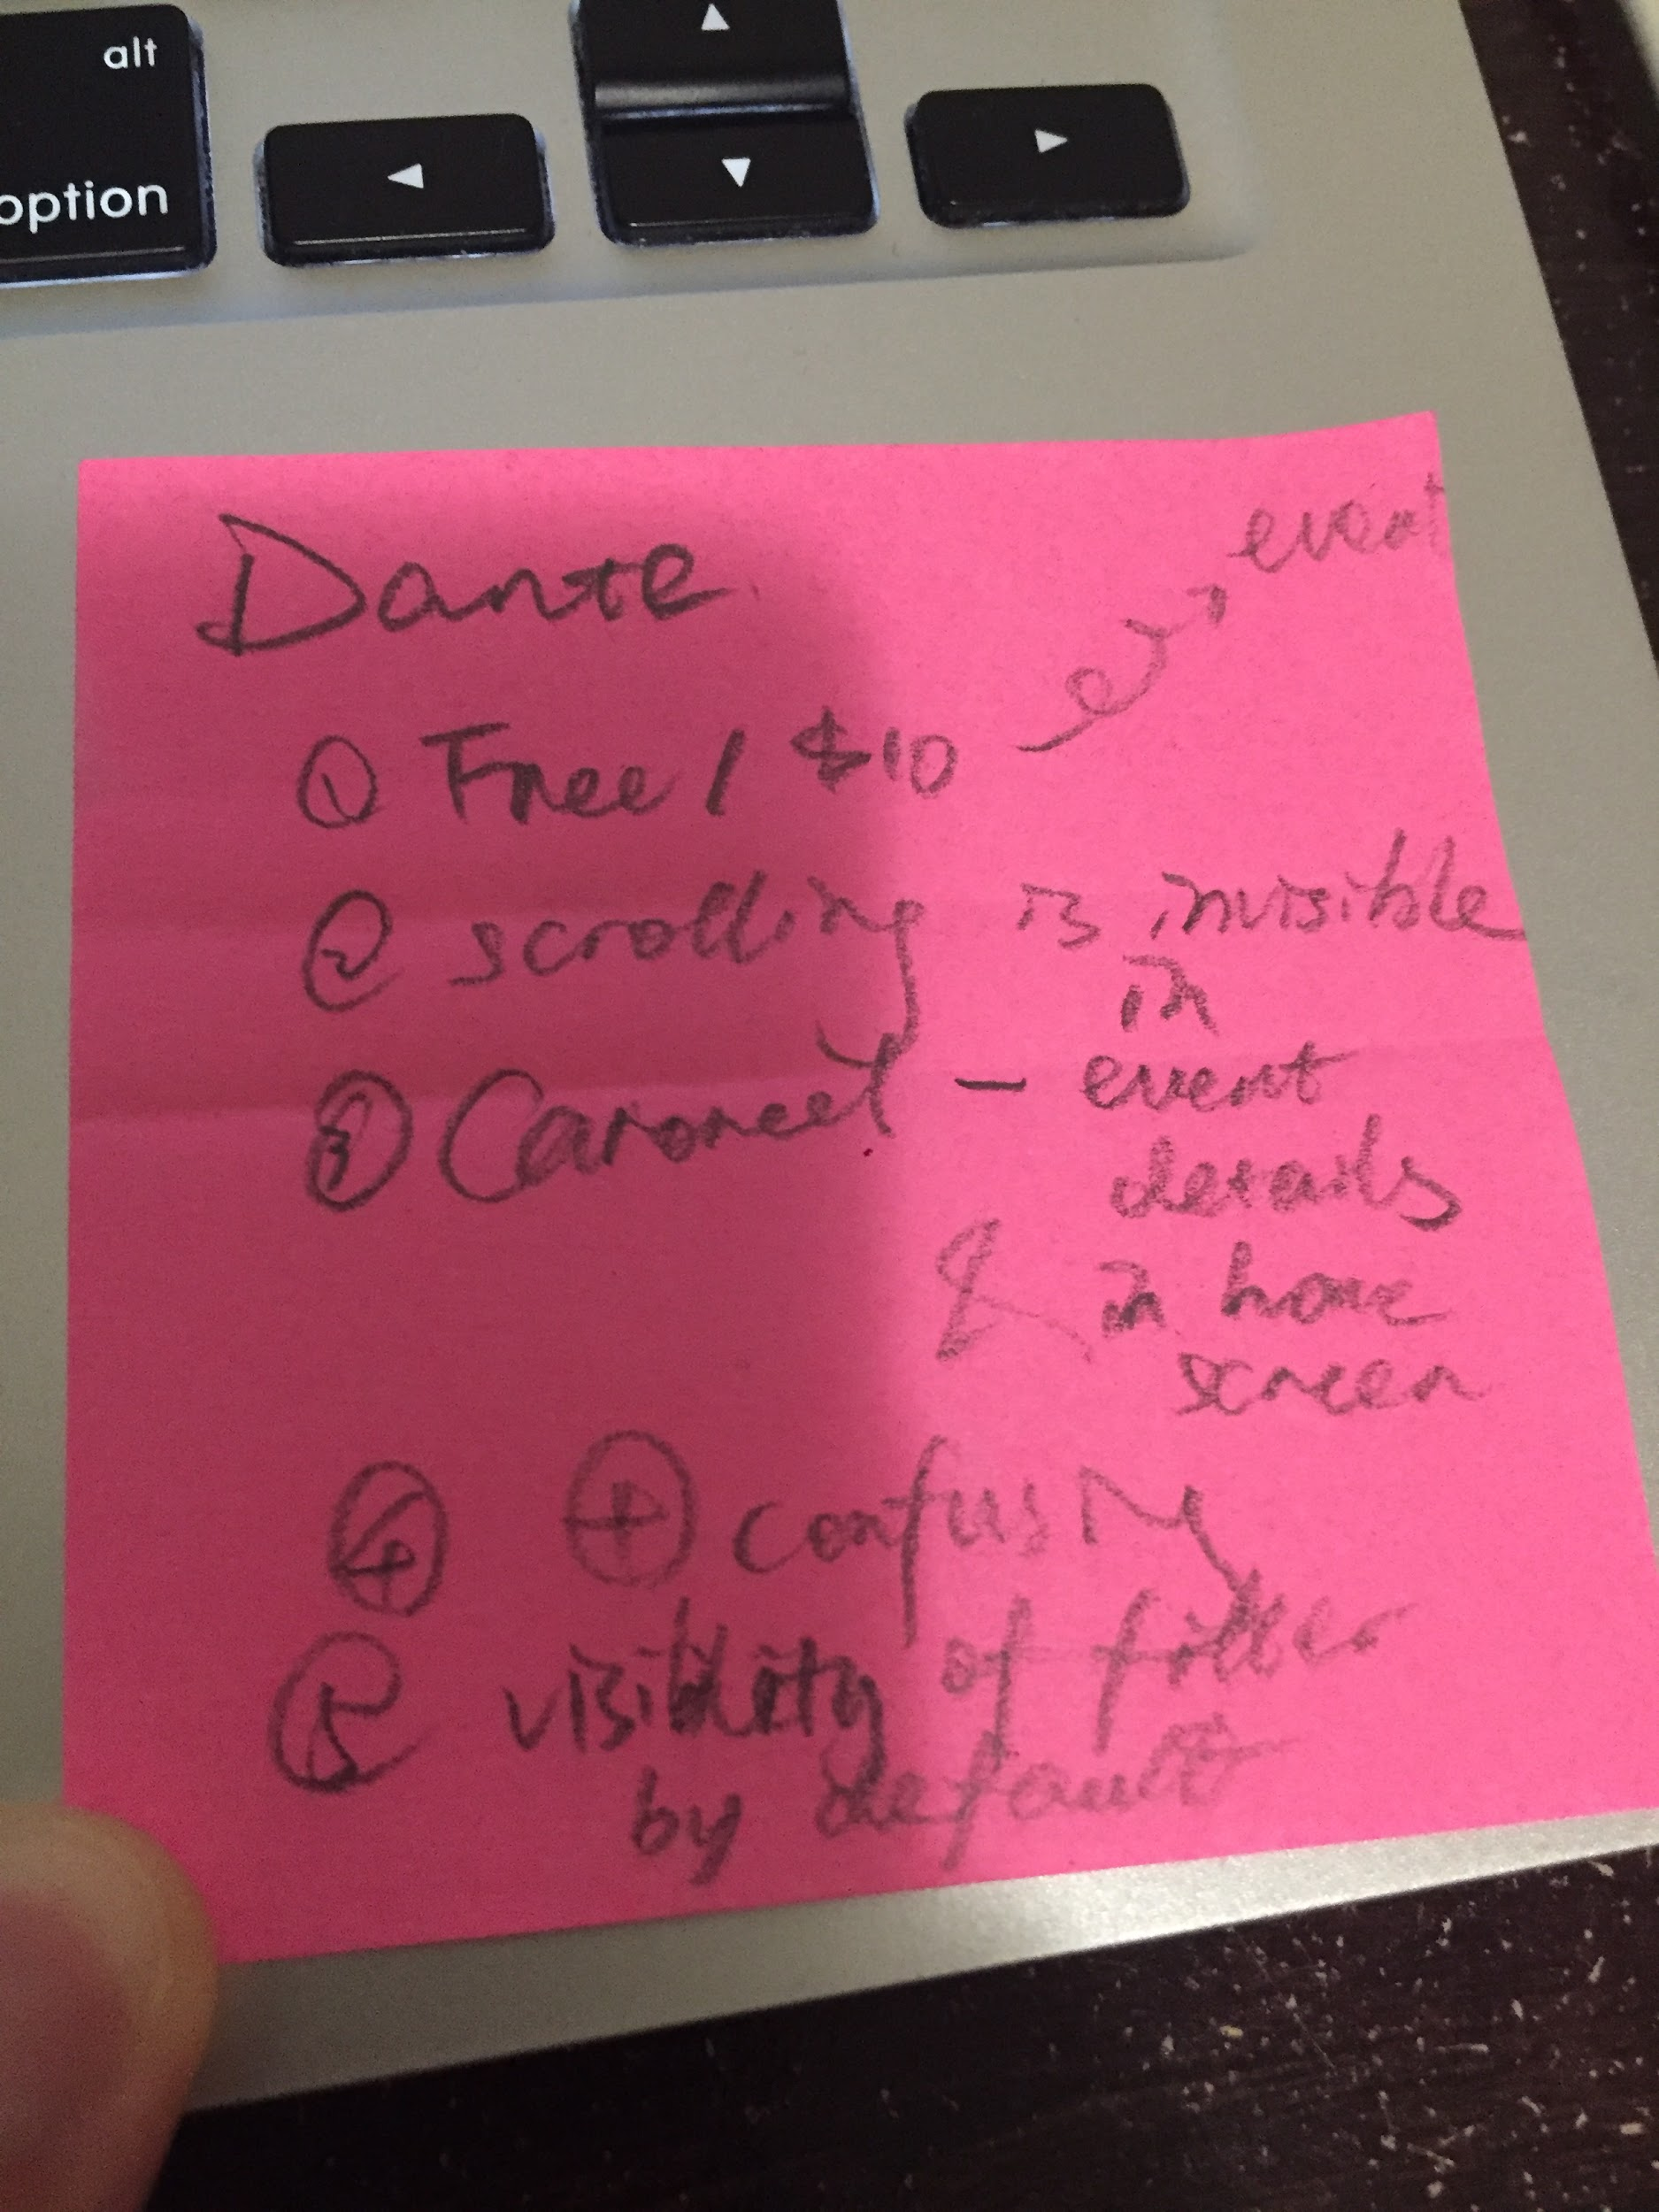 alt
option
◀
▲
▼
▶
Dante
event
① Free / $10
② scrolling is invisible
in
③ Carousel — event
details
& in home
screen
④ ⊕ confusing
⑤ visibility of filter
by default